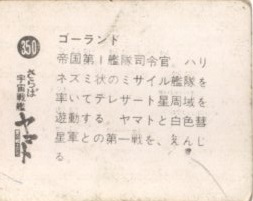 350
さらば
宇宙戦艦
ヤマト
ゴーランド
帝国第1艦隊司令官。ハリ
ネズミ状のミサイル艦隊を
率いてテレザート星周域を
遊動する。ヤマトと白色彗
星軍との第一戦を、えんじ
る。